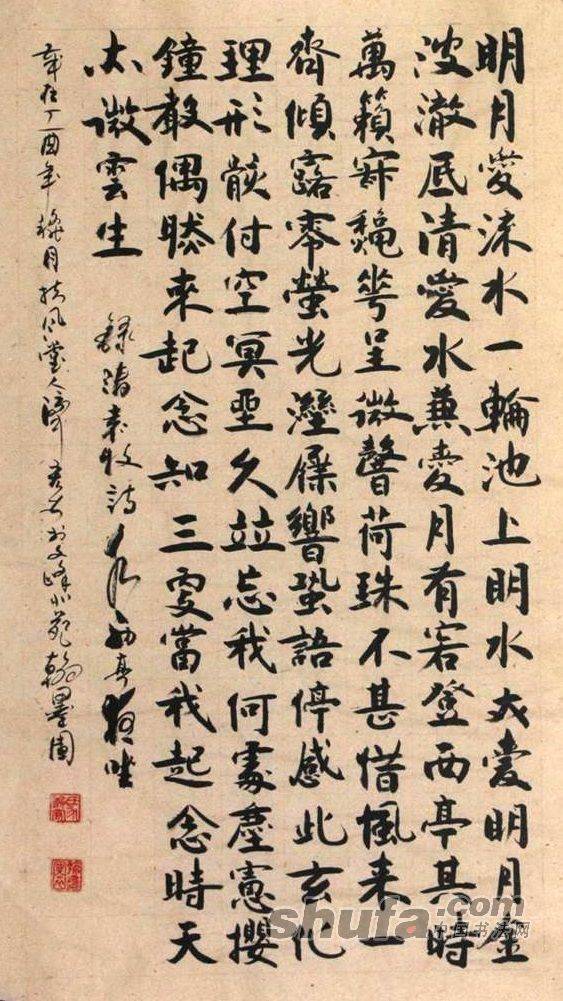 明月愛流水一輪池上明水亦愛明月金
波澈底清愛水兼愛月有客登西亭其時
萬籟寂穐花呈微馨荷珠不甚惜風來一
齊傾露零螢光溼屧響蛩語停感此玄化
理形骸付空冥坐久竝忘我何處塵慮攖
鐘聲偶然來起念知三更當我起念時天
亦微雲生
錄清袁枚詩水西亭夜坐
歲在丁酉年穐月扶風堂人濟書於文峰小苑翰墨園
shufa.com
中国书法网